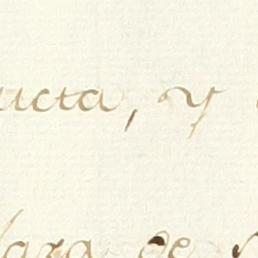 ucta, y
para de